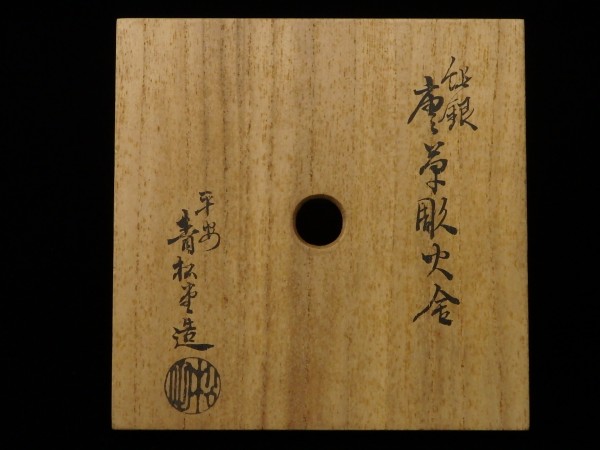 純銀
唐草彫火舎
平安
青松堂造